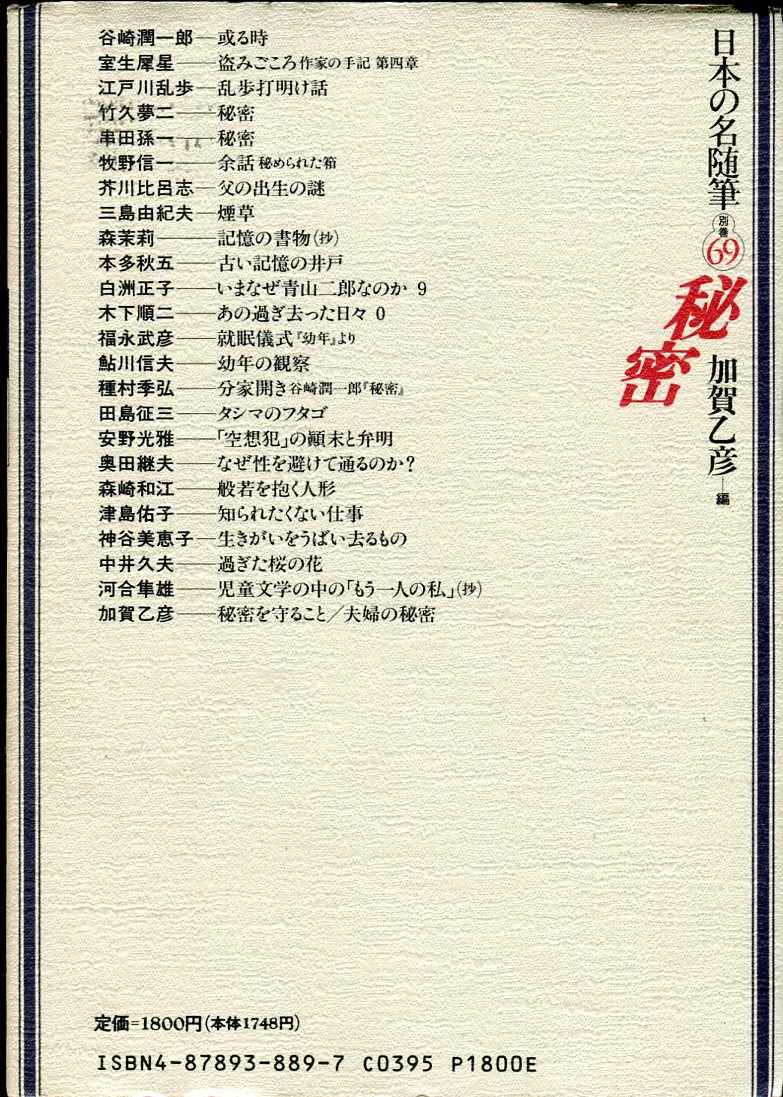 日本の名随筆 別巻 69
秘密
加賀乙彦―編
谷崎潤一郎―或る時
室生犀星――盗みごころ 作家の手記 第四章
江戸川乱歩―乱歩打明け話
竹久夢二――秘密
串田孫一――秘密
牧野信一――余話 秘められた箱
芥川比呂志―父の出生の謎
三島由紀夫―煙草
森茉莉―――記憶の書物(抄)
本多秋五――古い記憶の井戸
白洲正子――いまなぜ青山二郎なのか 9
木下順二――あの過ぎ去った日々 0
福永武彦――就眠儀式『幼年』より
鮎川信夫――幼年の観察
種村季弘――分家開き 谷崎潤一郎『秘密』
田島征三――タシマのフタゴ
安野光雅――「空想犯」の顚末と弁明
奥田継夫――なぜ性を避けて通るのか?
森崎和江――般若を抱く人形
津島佑子――知られたくない仕事
神谷美恵子―生きがいをうばい去るもの
中井久夫――過ぎた桜の花
河合隼雄――児童文学の中の「もう一人の私」(抄)
加賀乙彦――秘密を守ること/夫婦の秘密
定価=1800円(本体1748円)
ISBN4-87893-889-7 C0395 P1800E